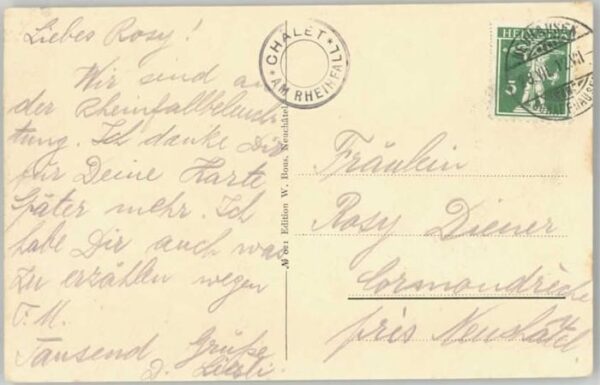 Liebes Rosy!
Wir sind an
der Rheinfallbeleuch-
tung. Ich danke Dir
für Deine Karte
Später mehr. Ich
habe Dir auch was
zu erzählen wegen
F. M.
Tausend Grüße
CHALET
AM RHEINFALL
№ 821 Edition W. Bous, Neuchâtel
HELVETIA
5
Fräulein
Rosy Diener
Cormondrèche
près Neuchâtel